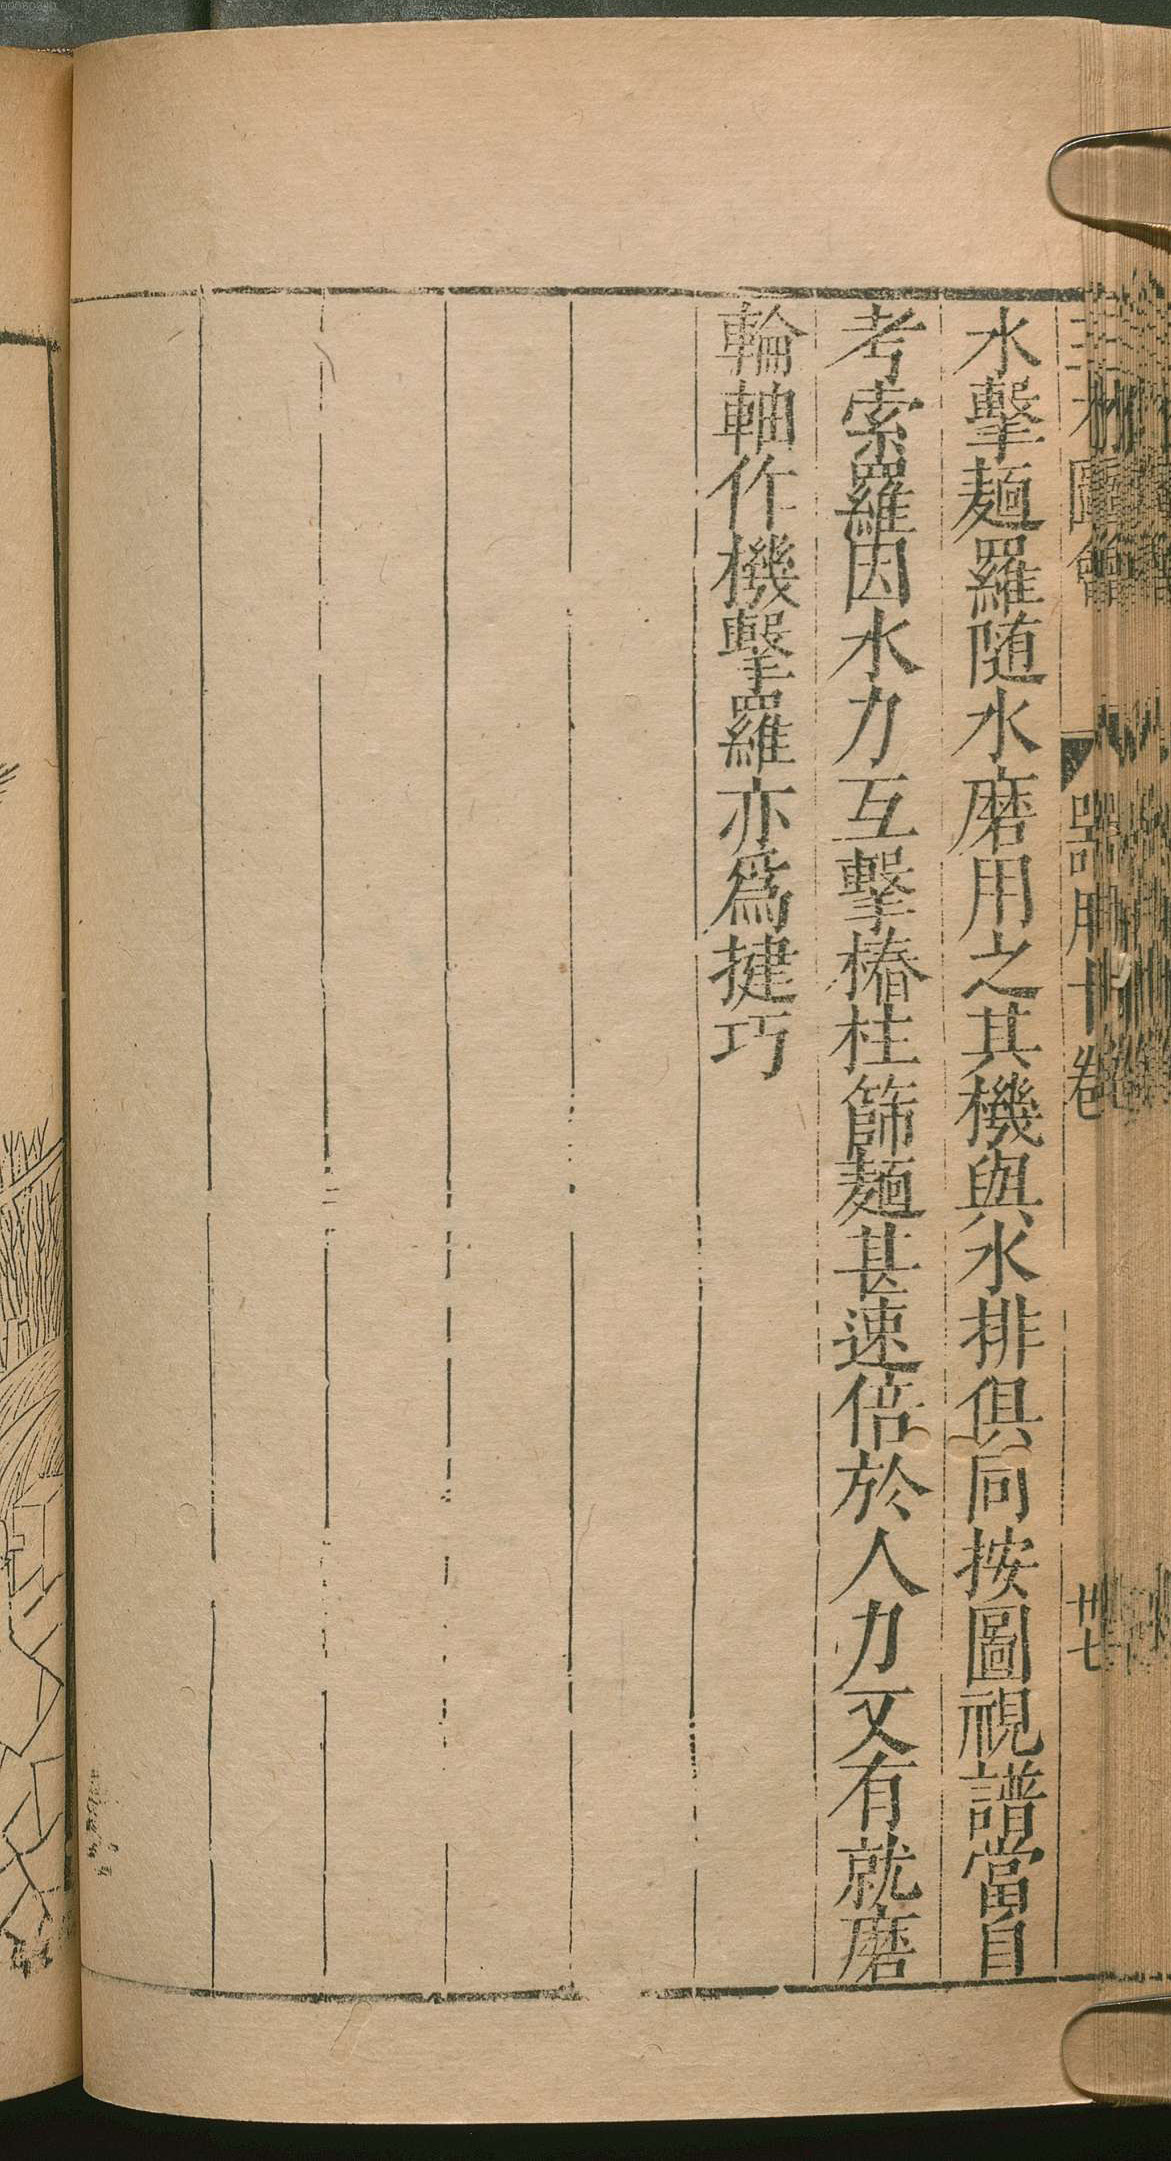 三才圖會 器用十卷 卅七
水擊麺羅隨水磨用之其機與水排俱同按圖視譜當自
考索羅因水力互擊樁柱篩麺甚速倍於人力又有就磨
輪軸作機擊羅亦為揵巧